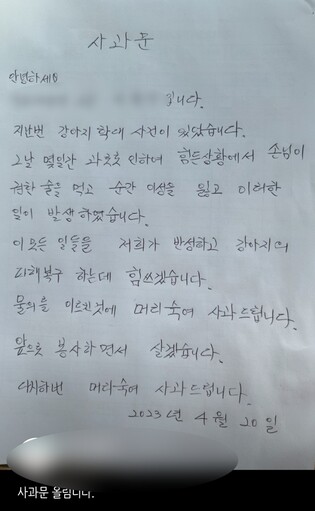 사과문
안녕하세요
입니다.
지난번 강아지 학대 사건이 있었습니다.
그날 몇일간 과로로 인하여 힘든상황에서 손님이
권한 술을 먹고 순간 이성을 잃고 이러한
일이 발생하였습니다.
이 모든 일들을 저희가 반성하고 강아지의
피해복구 하는데 힘쓰겠습니다.
물의를 이르킨것에 머리숙여 사과드립니다.
앞으로 봉사하면서 살겠습니다.
다시한번 머리숙여 사과드립니다.
2023년 4월 20일
사과문 올립니다.